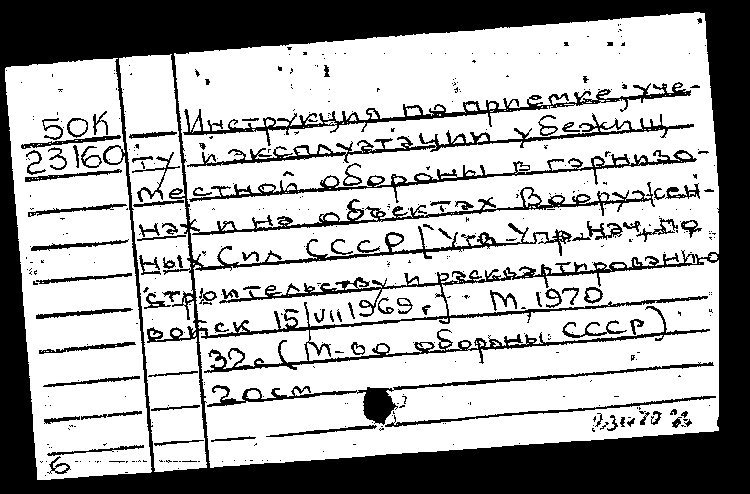 50К
23160
Инструкция по приемке, уче-
ту и эксплуатации убежищ
местной обороны в гарнизо-
нах и на объектах Вооружен-
ных Сил СССР [Утв. Упр. нач. по
строительству и расквартированию
войск 15/VII 1969 г.] М, 1970.
32с (М-во обороны СССР).
20см
6